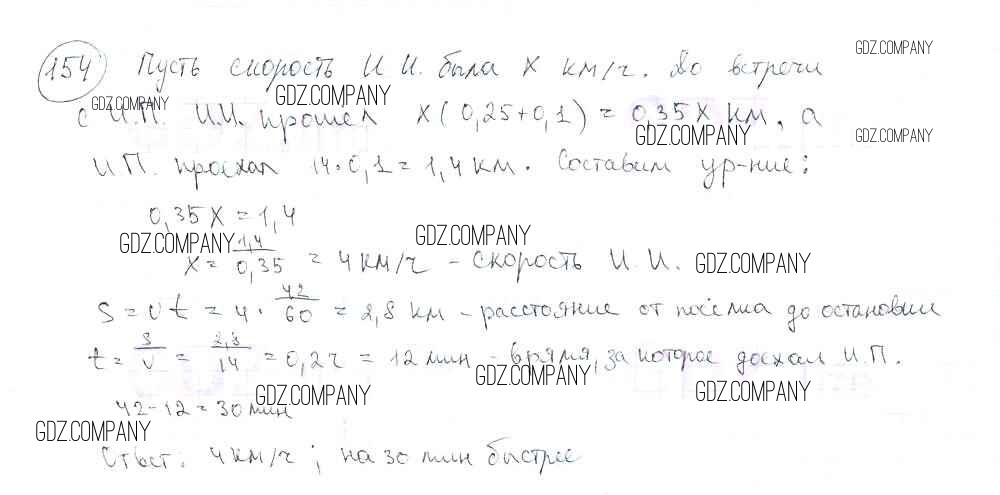 154 Пусть скорость И И. была x км/ч. До встречи
GDZ.COMPANY
GDZ.COMPANY
GDZ.COMPANY
с И.П. И.И. прошел x(0,25+0,1) = 0,35x км, а
GDZ.COMPANY
GDZ.COMPANY
И П. проехал 14·0,1=1,4 км. Составим ур-ние:
0,35x=1,4
GDZ.COMPANY
GDZ.COMPANY
x= 1,4/0,35 = 4 км/ч - скорость И. И.
GDZ.COMPANY
S = vt = 4 · 42/60 = 2,8 км - расстояние от посёлка до остановки
t= S/v = 2,8/14 = 0,2ч = 12 мин - врямя, за которое доехал И.П.
GDZ.COMPANY
GDZ.COMPANY
GDZ.COMPANY
42-12=30 мин
GDZ.COMPANY
Ответ: 4 км/ч; на 30 мин быстрее